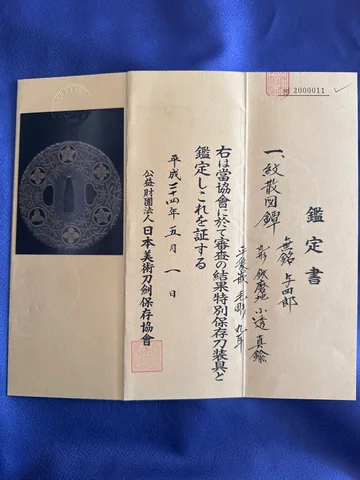 № 2000011
鑑定書
一、紋散図鐔 無銘 与四郎
鉄磨地 小透 真鍮
平象嵌 毛彫 丸耳
右は當協會に於て審査の結果特別保存刀装具と
鑑定しこれを証する
平成二十四年 五月 一日
公益財團法人 日本美術刀劍保存協會